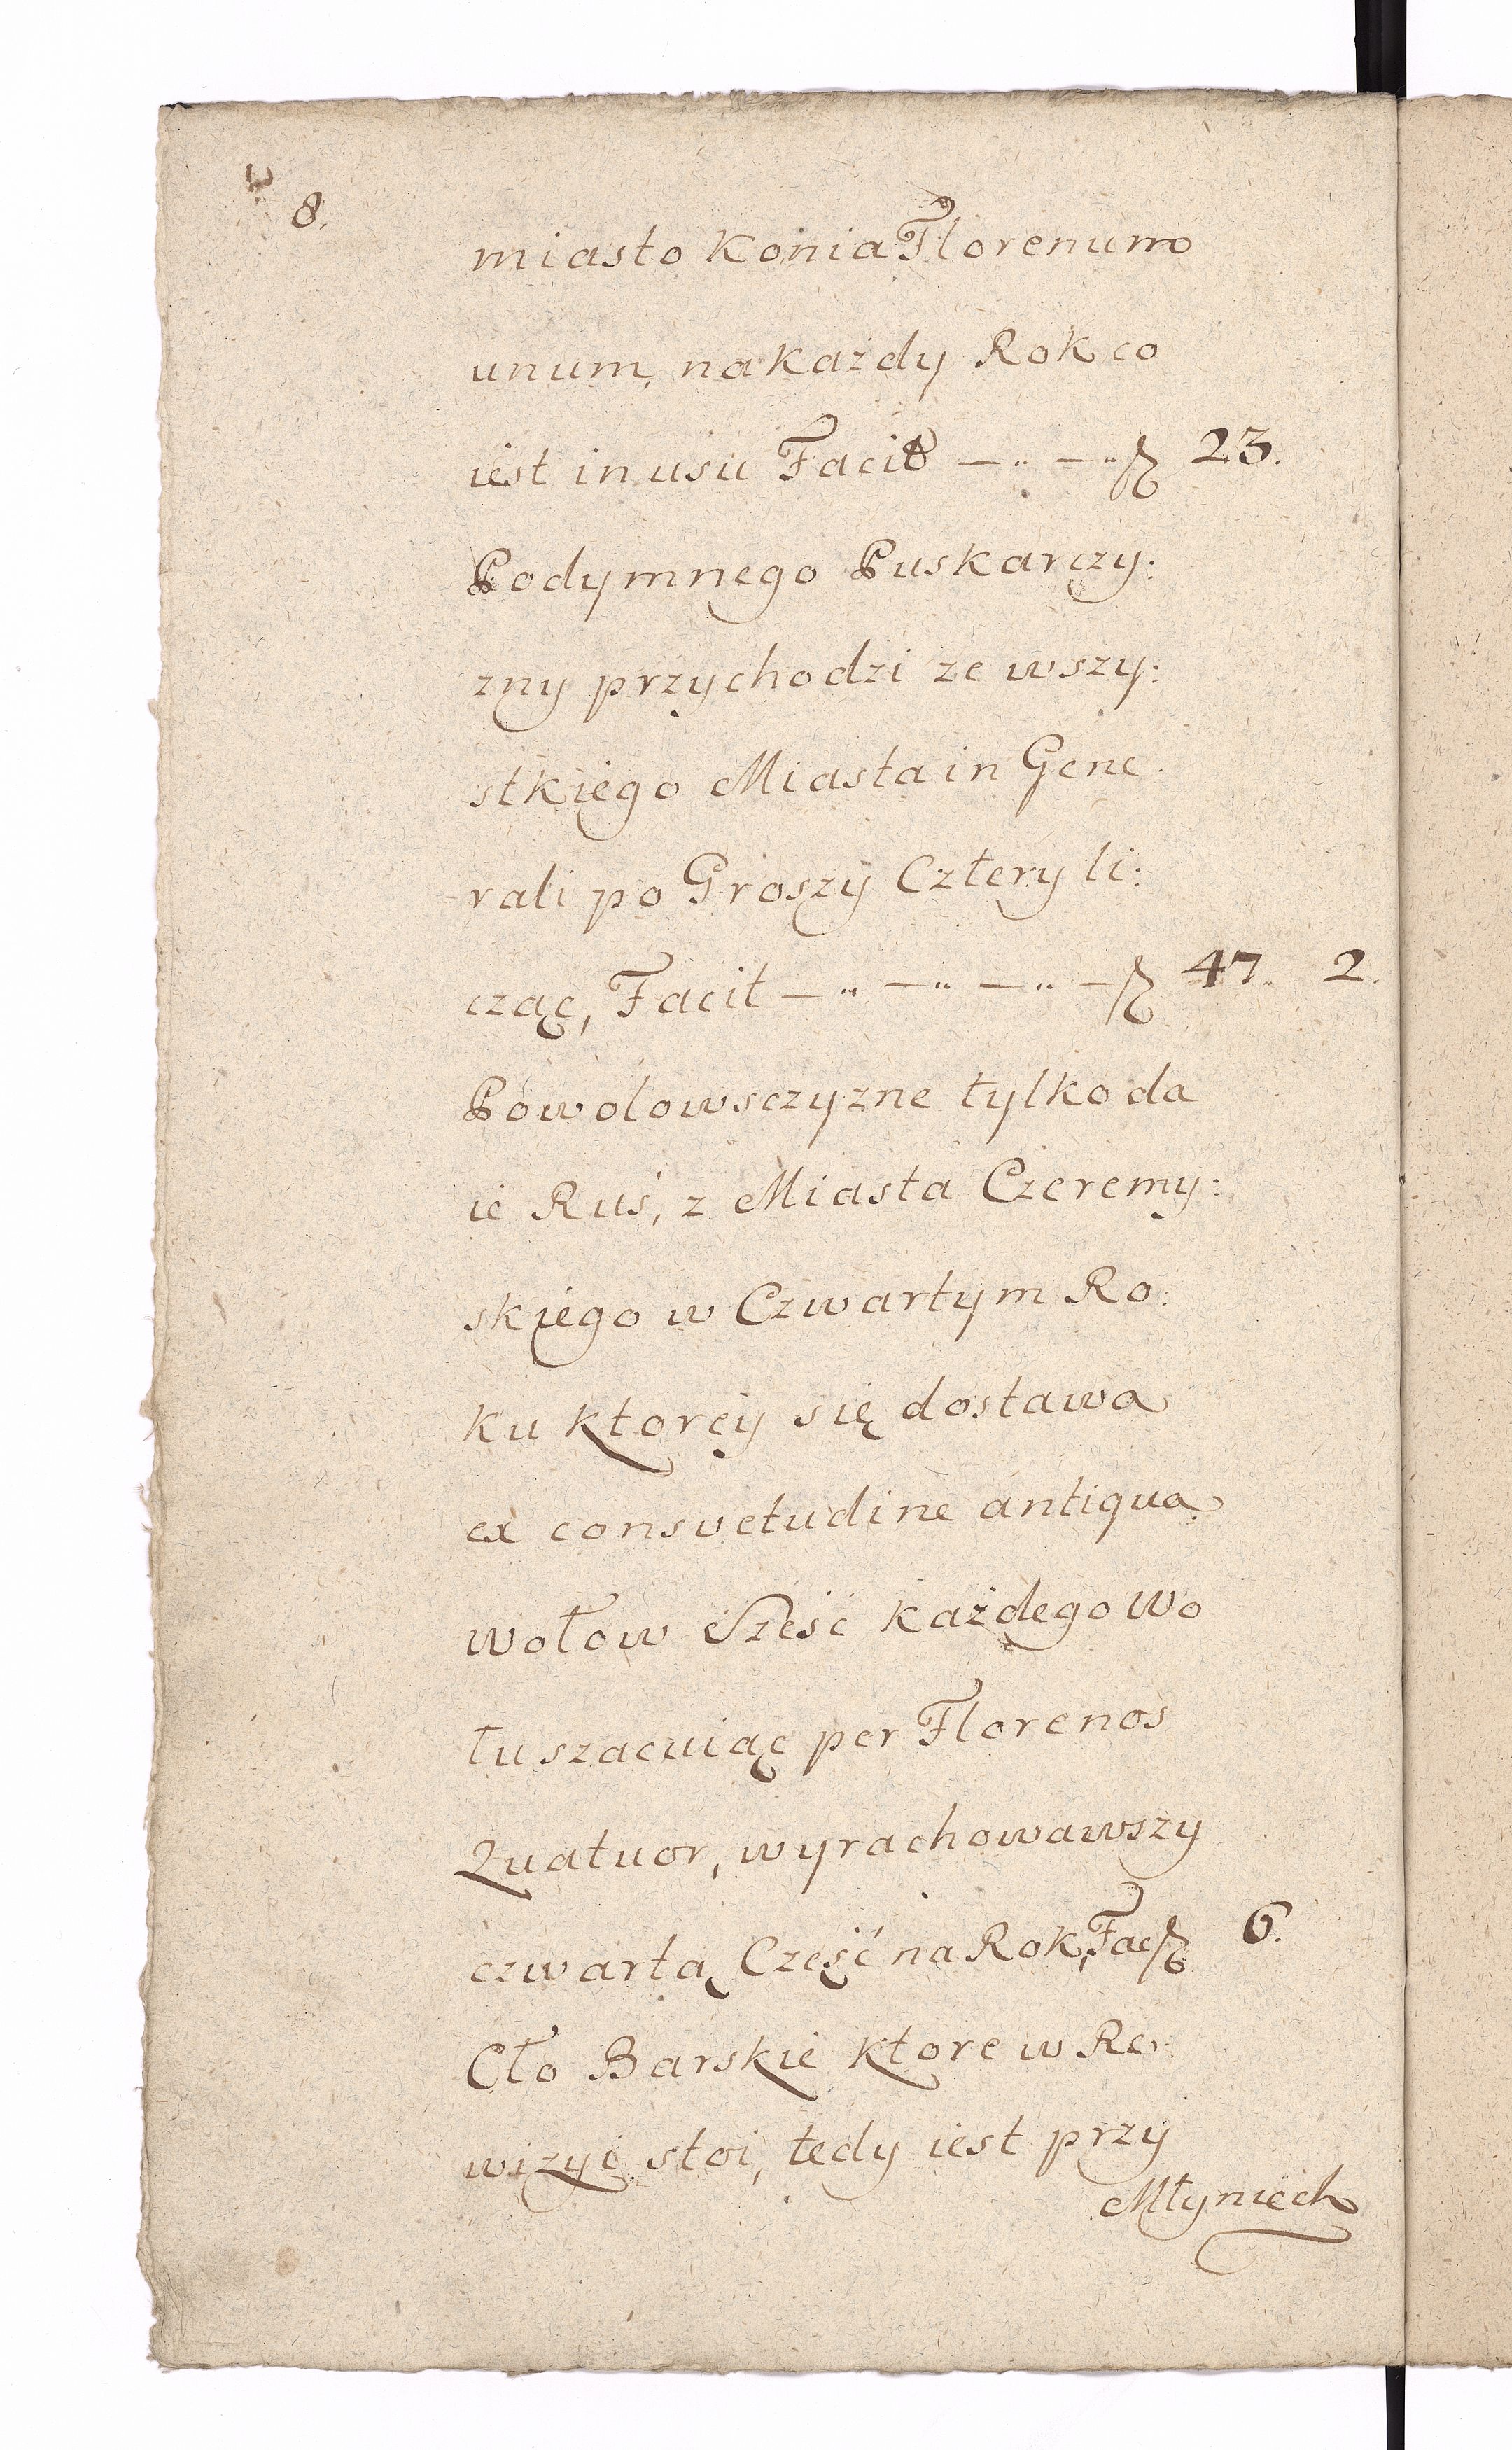 8.
miasto Konia Florenum
unum, na każdy Rok co
iest in usu Facit — .. — .. 23.
Podymnego Puskarczy:
zny przychodzi ze wszy:
stkiego Miasta in Gene
rali po Groszy Cztery li:
cząc, Facit — .. — .. — .. — 47. 2.
Powolowsczyzne tylko da
ie Ruś, z Miasta Czeremy:
skiego w Czwartym Ro:
ku ktorey się dostawa
ex consvetudine antiqua
wołow Sześć każdego Wo
łu szacuiąc per Florenos
Quatuor, wyrachowawszy
czwartą Cześć na Rok, Fac 6.
Cło Barskie ktore w Re:
wizyi stoi, tedy iest przy
Młyniech